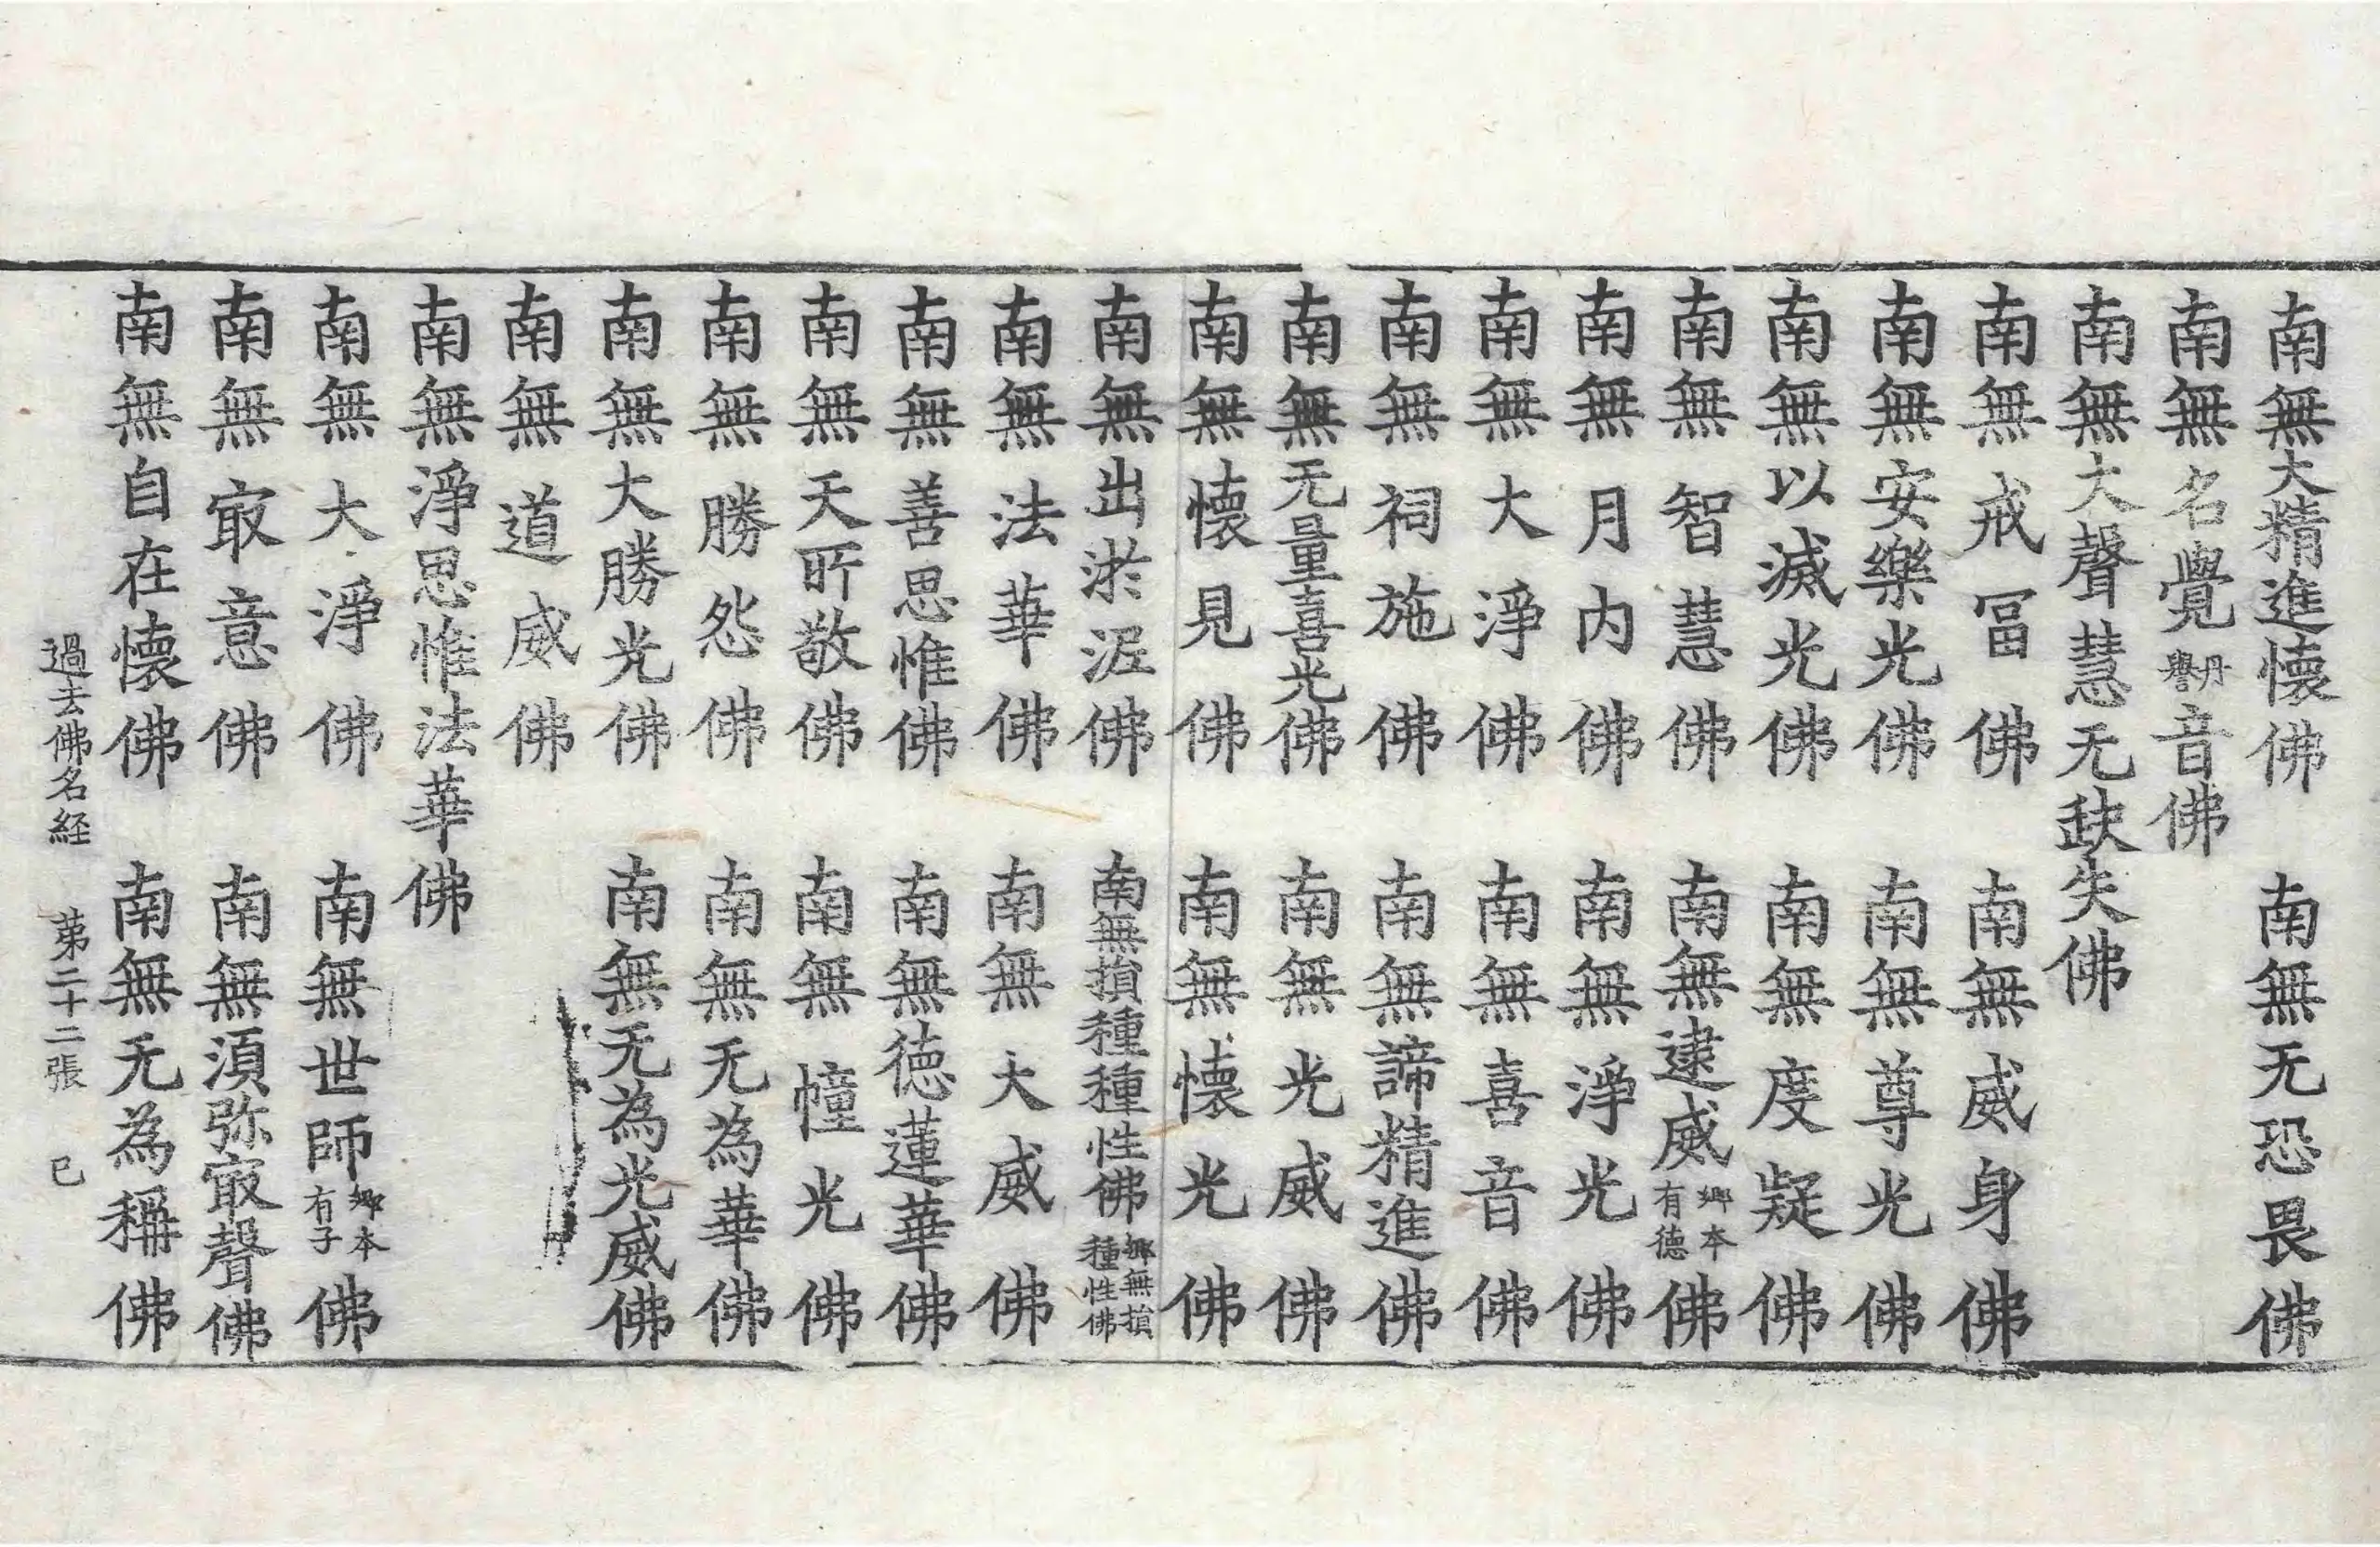 南無大精進懷佛　南無无恐畏佛
南無名覺丹譽音佛
南無大聲慧无缺失佛
南無戒冨佛　南無威身佛
南無安樂光佛　南無尊光佛
南無以滅光佛　南無度疑佛
南無智慧佛　南無逮威鄉本有德佛
南無月内佛　南無淨光佛
南無大淨佛　南無喜音佛
南無祠施佛　南無諦精進佛
南無无量喜光佛　南無光威佛
南無懷見佛　南無懷光佛
南無出淤泥佛　南無損種種性佛鄉無損種性佛
南無法華佛　南無大威佛
南無善思惟佛　南無德蓮華佛
南無天所敬佛　南無幢光佛
南無勝怨佛　南無无為華佛
南無大勝光佛　南無无為光威佛
南無道威佛
南無淨思惟法華佛
南無大淨佛　南無世師鄉本有子佛
南無㝡意佛　南無湏弥㝡聲佛
南無自在懷佛　南無无為稱佛
過去佛名経　苐二十二張　已